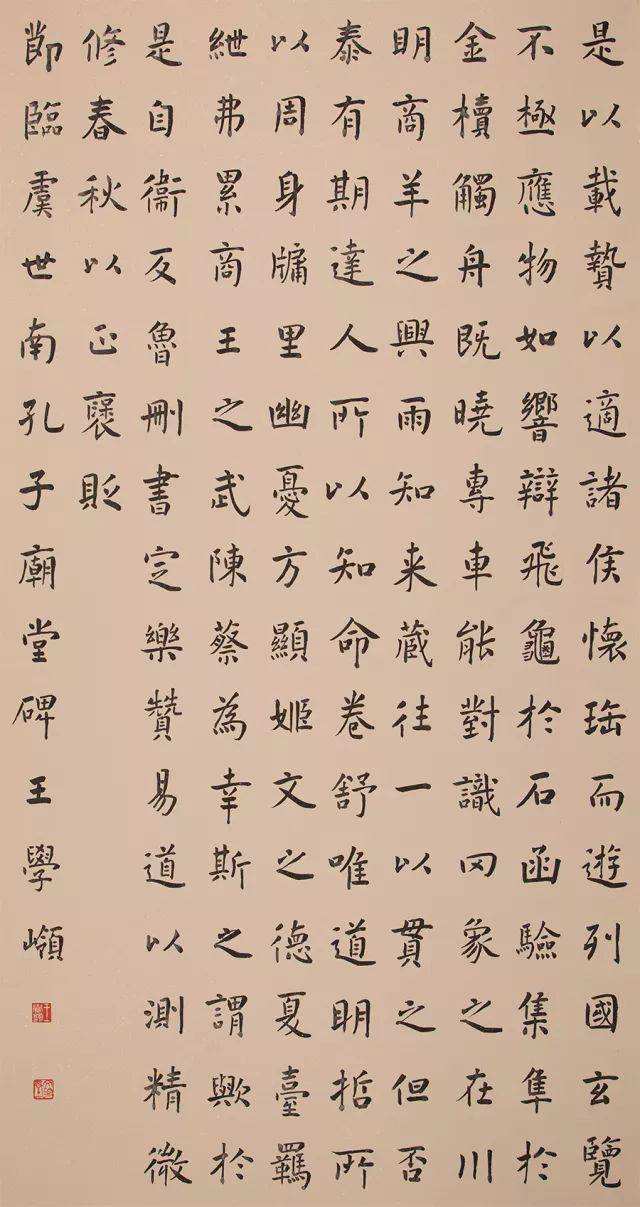 是以載贄以適諸侯懷珤而遊列國玄覽
不極應物如響辯飛龜於石函驗集隼於
金櫝觸舟既曉專車能對識罔象之在川
明商羊之興雨知来蔵往一以貫之但否
泰有期達人所以知命卷舒唯道明哲所
以周身牖里幽憂方顯姬文之德夏臺羈
紲弗累商王之武陳蔡為幸斯之謂歟於
是自衞反魯刪書定樂贊易道以測精微
修春秋以正襃貶
節臨虞世南孔子廟堂碑王學嶺